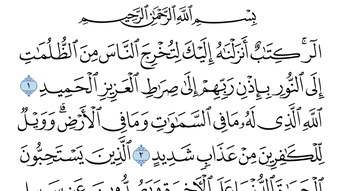 بِسْمِ اللَّهِ الرَّحْمَٰنِ الرَّحِيمِ
الٓر ۚ كِتَٰبٌ أَنزَلْنَٰهُ إِلَيْكَ لِتُخْرِجَ النَّاسَ مِنَ الظُّلُمَاتِ
إِلَى النُّورِ بِإِذْنِ رَبِّهِمْ إِلَىٰ صِرَاطِ الْعَزِيزِ الْحَمِيدِ ١
اللَّهِ الَّذِي لَهُ مَا فِي السَّمَٰوَٰتِ وَمَا فِي الْأَرْضِ ۗ وَوَيْلٌ
لِّلْكَٰفِرِينَ مِنْ عَذَابٍ شَدِيدٍ ٢ الَّذِينَ يَسْتَحِبُّونَ